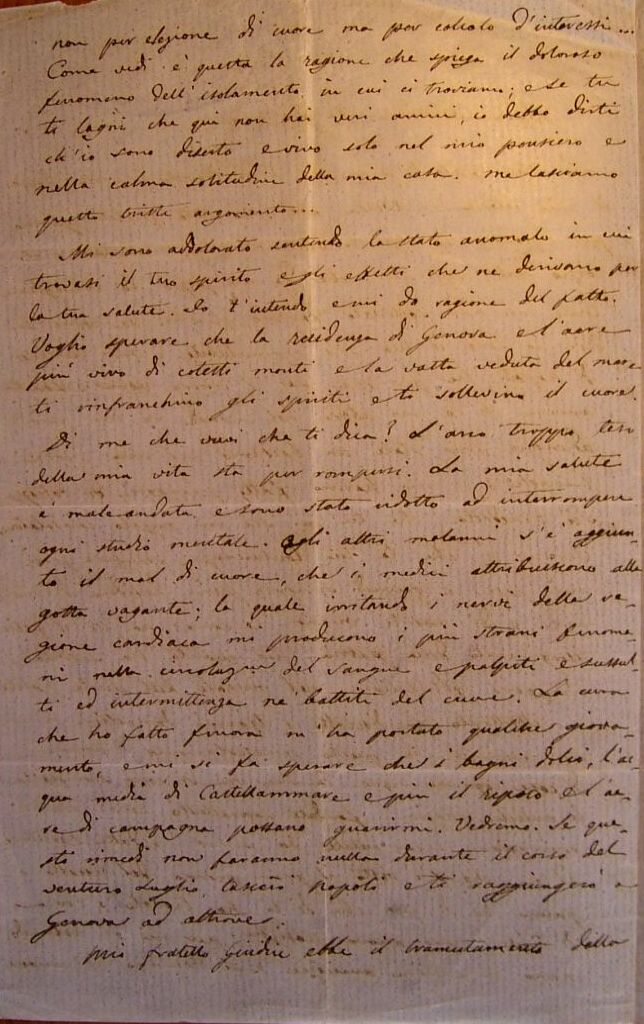 non per elezione di cuore ma per calcolo d'interessi...
Come vedi è questa la ragione che spiega il doloroso
fenomeno dell'isolamento in cui ci troviamo; e se tu
ti lagni che qui non hai veri amici, io debbo dirti
ch'io sono diserto e vivo solo nel mio pensiero e
nella calma solitudine della mia casa. Ma lasciamo
questo triste argomento...
Mi sono addolorato sentendo lo stato anomalo in cui
trovasi il tuo spirito e gli effetti che ne derivano per
la tua salute. Io t'intendo e mi do ragione del fatto.
Voglio sperare che la residenza di Genova e l'aere
più vivo di cotesti monti e la vasta veduta del mare
ti rinfranchino gli spiriti e ti sollevino il cuore.
Di me che vuoi che ti dica? L'arco troppo teso
della mia vita sta per rompersi. La mia salute
è male andata e sono stato ridotto ad interrompere
ogni studio mentale. Agli altri malanni s'è aggiun-
to il mal di cuore, che i medici attribuiscono alla
gotta vagante; la quale irritando i nervi della re-
gione cardiaca mi producono i più strani fenome-
ni nella circolaz.ne del sangue e palpiti e sussul-
ti ed intermittenza ne' battiti del cuore. La cura
che ho fatto finora m'ha portato qualche giova-
mento, e mi si fa sperare che i bagni dolci, l'ac-
qua media di Castellammare e più il riposo e l'ae-
re di campagna possano guarirmi. Vedremo. Se que-
sti rimedi non faranno nulla durante il corso del
venturo Luglio, lascerò Napoli e ti raggiungerò a
Genova od altrove.
Mio fratello Giudice ebbe il tramutamento dalla